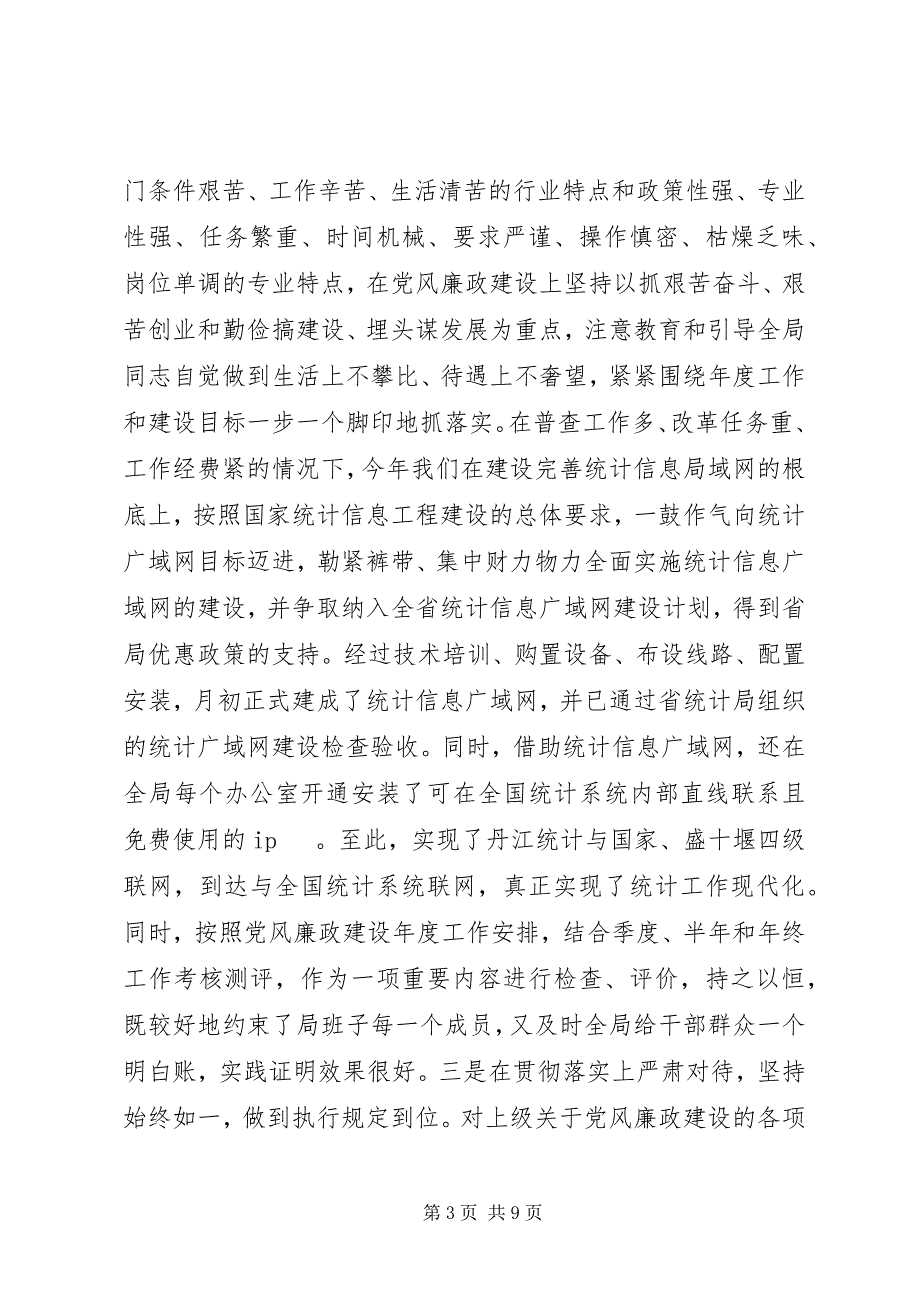 门条件艰苦、工作辛苦、生活清苦的行业特点和政策性强、专业
性强、任务繁重、时间机械、要求严谨、操作慎密、枯燥乏味、
岗位单调的专业特点，在党风廉政建设上坚持以抓艰苦奋斗、艰
苦创业和勤俭搞建设、埋头谋发展为重点，注意教育和引导全局
同志自觉做到生活上不攀比、待遇上不奢望，紧紧围绕年度工作
和建设目标一步一个脚印地抓落实。在普查工作多、改革任务重、
工作经费紧的情况下，今年我们在建设完善统计信息局域网的根
底上，按照国家统计信息工程建设的总体要求，一鼓作气向统计
广域网目标迈进，勒紧裤带、集中财力物力全面实施统计信息广
域网的建设，并争取纳入全省统计信息广域网建设计划，得到省
局优惠政策的支持。经过技术培训、购置设备、布设线路、配置
安装，月初正式建成了统计信息广域网，并已通过省统计局组织
的统计广域网建设检查验收。同时，借助统计信息广域网，还在
全局每个办公室开通安装了可在全国统计系统内部直线联系且
免费使用的ip 。至此，实现了丹江统计与国家、盛十堰四级
联网，到达与全国统计系统联网，真正实现了统计工作现代化。
同时，按照党风廉政建设年度工作安排，结合季度、半年和年终
工作考核测评，作为一项重要内容进行检查、评价，持之以恒，
既较好地约束了局班子每一个成员，又及时全局给干部群众一个
明白账，实践证明效果很好。三是在贯彻落实上严肃对待，坚持
始终如一，做到执行规定到位。对上级关于党风廉政建设的各项
第 3 页 共 9 页